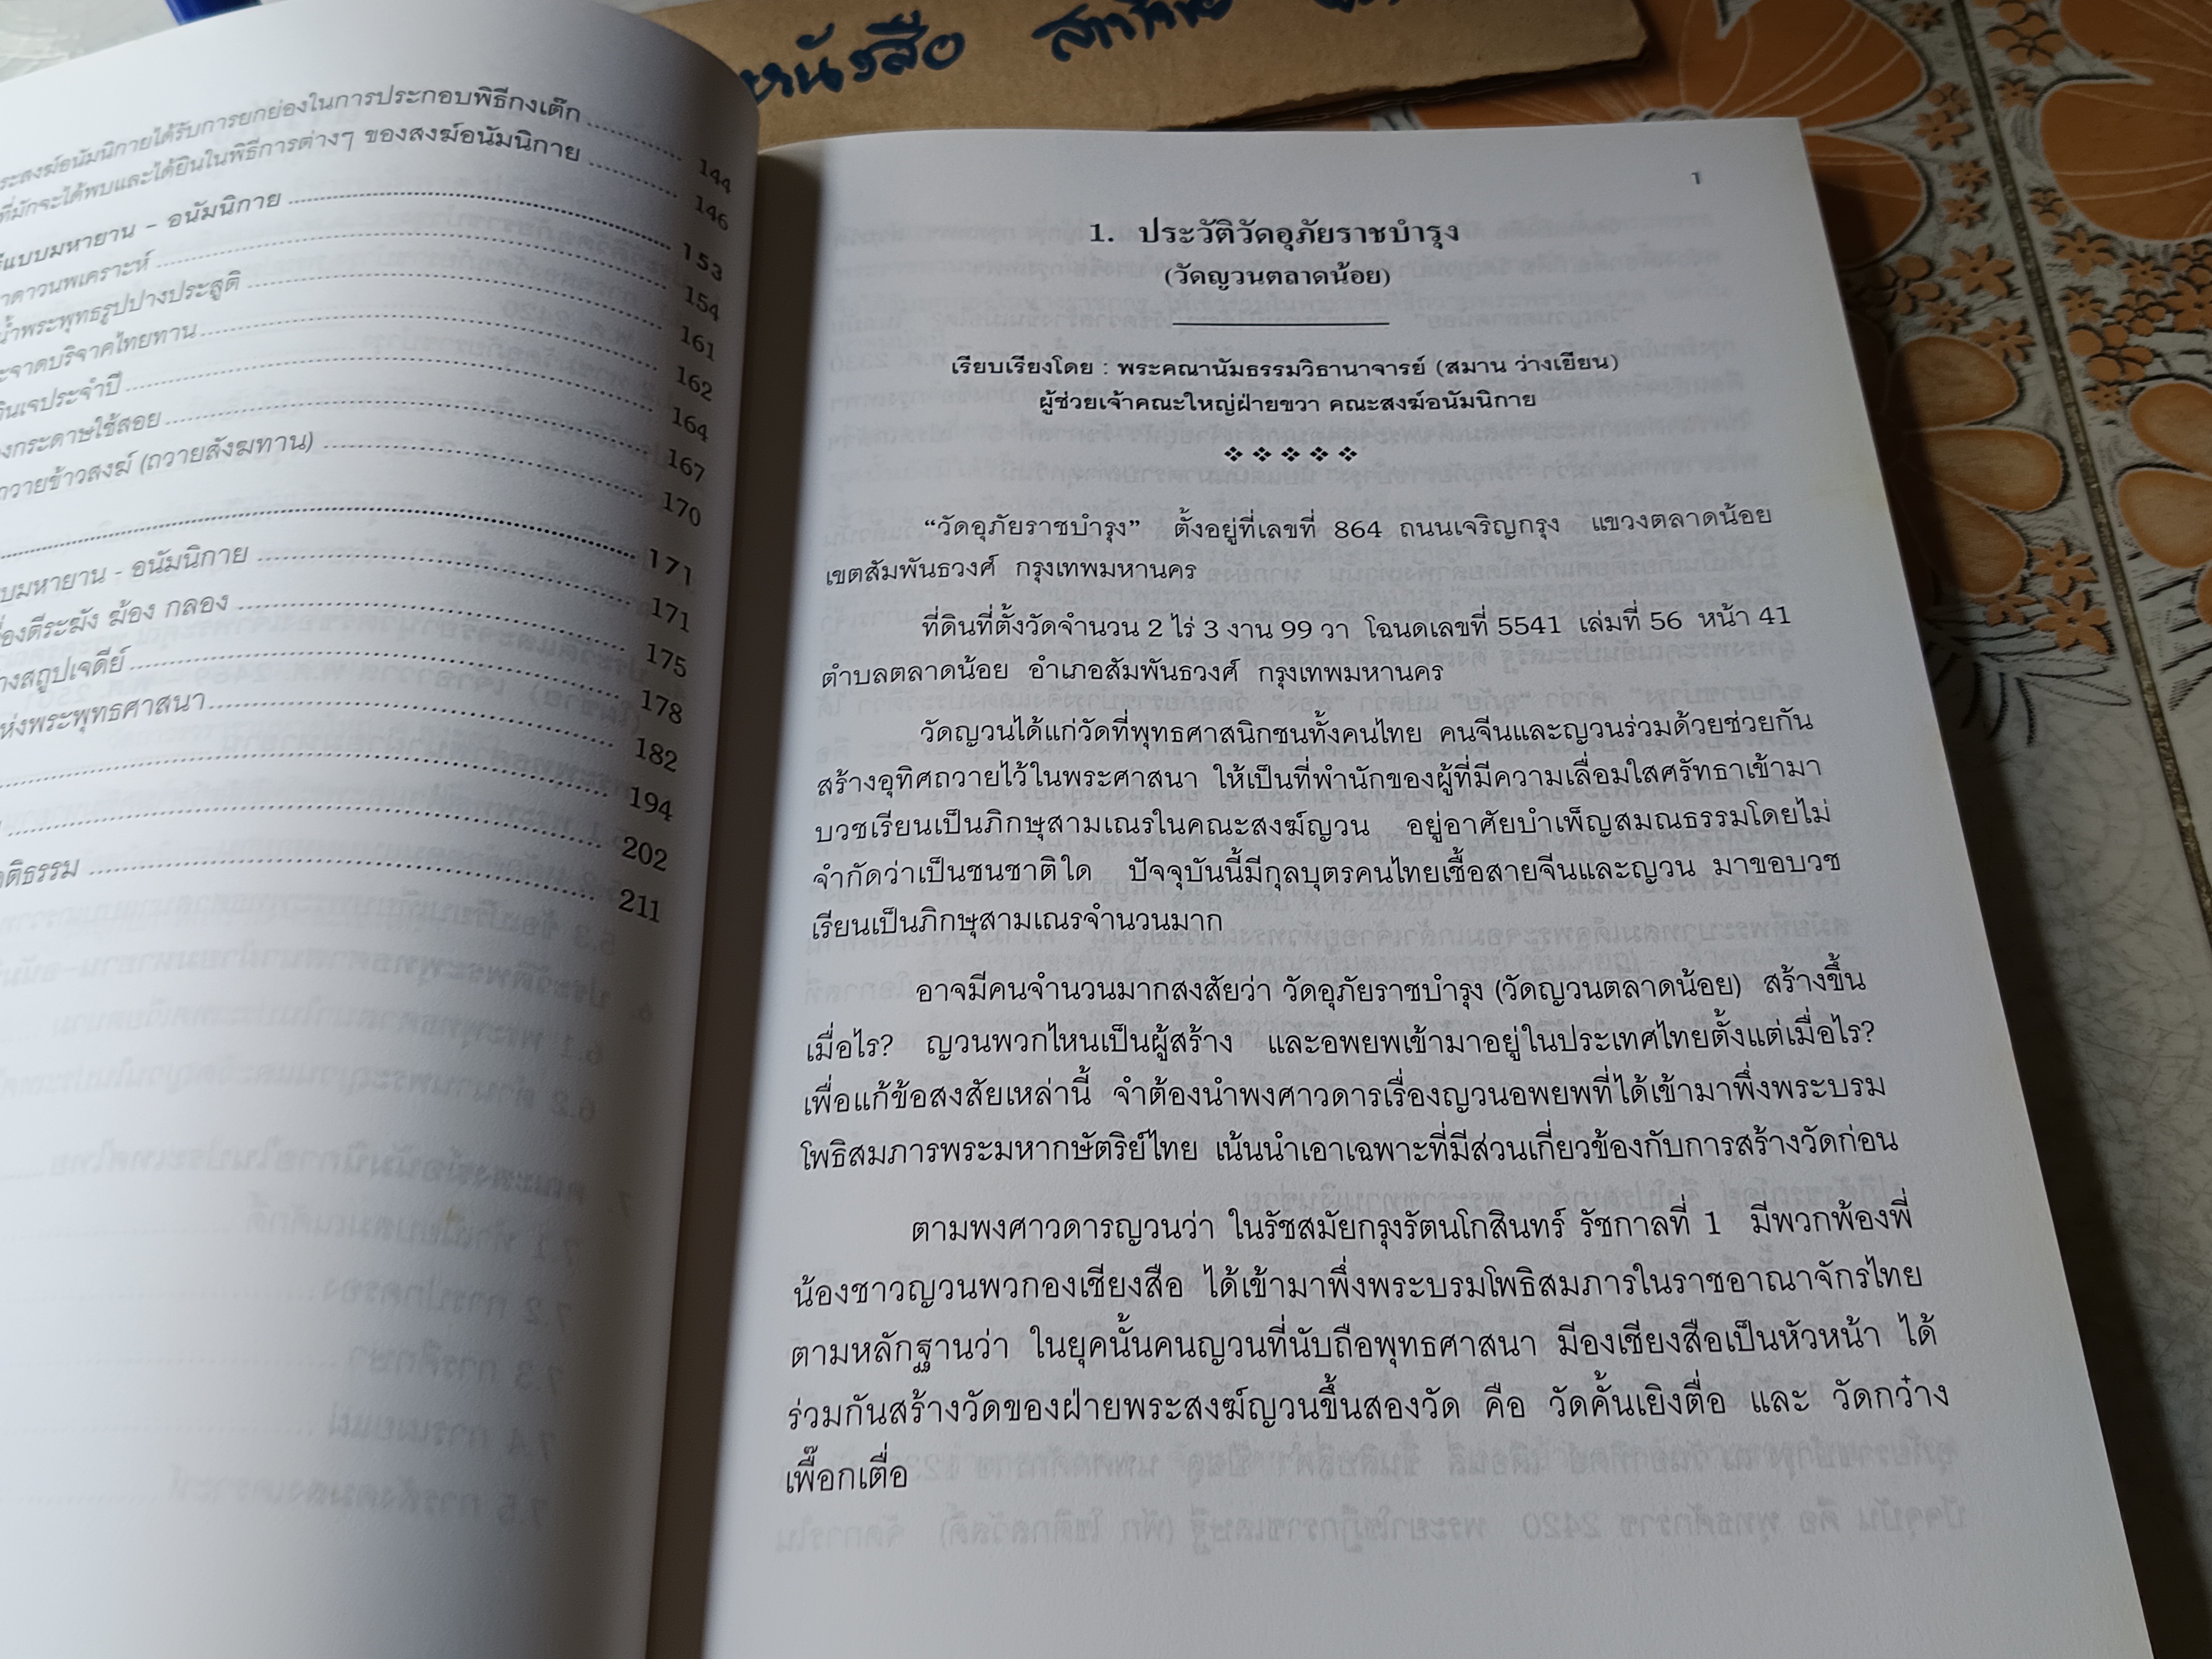 หนังสือ
ระสงฆ์อนัมนิกายได้รับการยกย่องในการประกอบพิธีกงเต๊ก 144
ที่มักจะได้พบและได้ยินในพิธีการต่างๆ ของสงฆ์อนัมนิกาย 146
แบบมหายาน - อนัมนิกาย 153
ดาวนพเคราะห์ 154
น้ำพระพุทธรูปปางประสูติ 161
ะจาดบริจาคไทยทาน 162
กินเจประจำปี 164
งกระดาษใช้สอย 167
ถวายข้าวสงฆ์ (ถวายสังฆทาน) 170
171
บมหายาน - อนัมนิกาย 171
องตีระฆัง ฆ้อง กลอง 175
างสถูปเจดีย์ 178
ห่งพระพุทธศาสนา 182
194
202
ติธรรม 211
1
1. ประวัติวัดอุภัยราชบำรุง
(วัดญวนตลาดน้อย)
เรียบเรียงโดย : พระคณานัมธรรมวิธานาจารย์ (สมาน ว่างเยียน)
ผู้ช่วยเจ้าคณะใหญ่ฝ่ายขวา คณะสงฆ์อนัมนิกาย
“วัดอุภัยราชบำรุง” ตั้งอยู่ที่เลขที่ 864 ถนนเจริญกรุง แขวงตลาดน้อย
เขตสัมพันธวงศ์ กรุงเทพมหานคร
ที่ดินที่ตั้งวัดจำนวน 2 ไร่ 3 งาน 99 วา โฉนดเลขที่ 5541 เล่มที่ 56 หน้า 41
ตำบลตลาดน้อย อำเภอสัมพันธวงศ์ กรุงเทพมหานคร
วัดญวนได้แก่วัดที่พุทธศาสนิกชนทั้งคนไทย คนจีนและญวนร่วมด้วยช่วยกัน
สร้างอุทิศถวายไว้ในพระศาสนา ให้เป็นที่พำนักของผู้ที่มีความเลื่อมใสศรัทธาเข้ามา
บวชเรียนเป็นภิกษุสามเณรในคณะสงฆ์ญวน อยู่อาศัยบำเพ็ญสมณธรรมโดยไม่
จำกัดว่าเป็นชนชาติใด ปัจจุบันนี้มีกุลบุตรคนไทยเชื้อสายจีนและญวน มาขอบวช
เรียนเป็นภิกษุสามเณรจำนวนมาก
อาจมีคนจำนวนมากสงสัยว่า วัดอุภัยราชบำรุง (วัดญวนตลาดน้อย) สร้างขึ้น
เมื่อไร? ญวนพวกไหนเป็นผู้สร้าง และอพยพเข้ามาอยู่ในประเทศไทยตั้งแต่เมื่อไร?
เพื่อแก้ข้อสงสัยเหล่านี้ จำต้องนำพงศาวดารเรื่องญวนอพยพที่ได้เข้ามาพึ่งพระบรม
โพธิสมภารพระมหากษัตริย์ไทย เน้นนำเอาเฉพาะที่มีส่วนเกี่ยวข้องกับการสร้างวัดก่อน
ตามพงศาวดารญวนว่า ในรัชสมัยกรุงรัตนโกสินทร์ รัชกาลที่ 1 มีพวกพ้องพี่
น้องชาวญวนพวกองเชียงสือ ได้เข้ามาพึ่งพระบรมโพธิสมภารในราชอาณาจักรไทย
ตามหลักฐานว่า ในยุคนั้นคนญวนที่นับถือพุทธศาสนา มีองเชียงสือเป็นหัวหน้า ได้
ร่วมกันสร้างวัดของฝ่ายพระสงฆ์ญวนขึ้นสองวัด คือ วัดคั้นเยิงตื่อ และ วัดกว๋าง
เพื๊อกเตื่อ